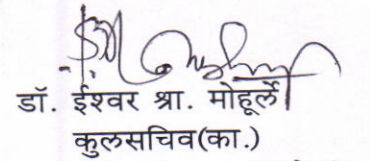 डॉ. ईश्वर श्रा. मोहूर्ले
कुलसचिव(का.)